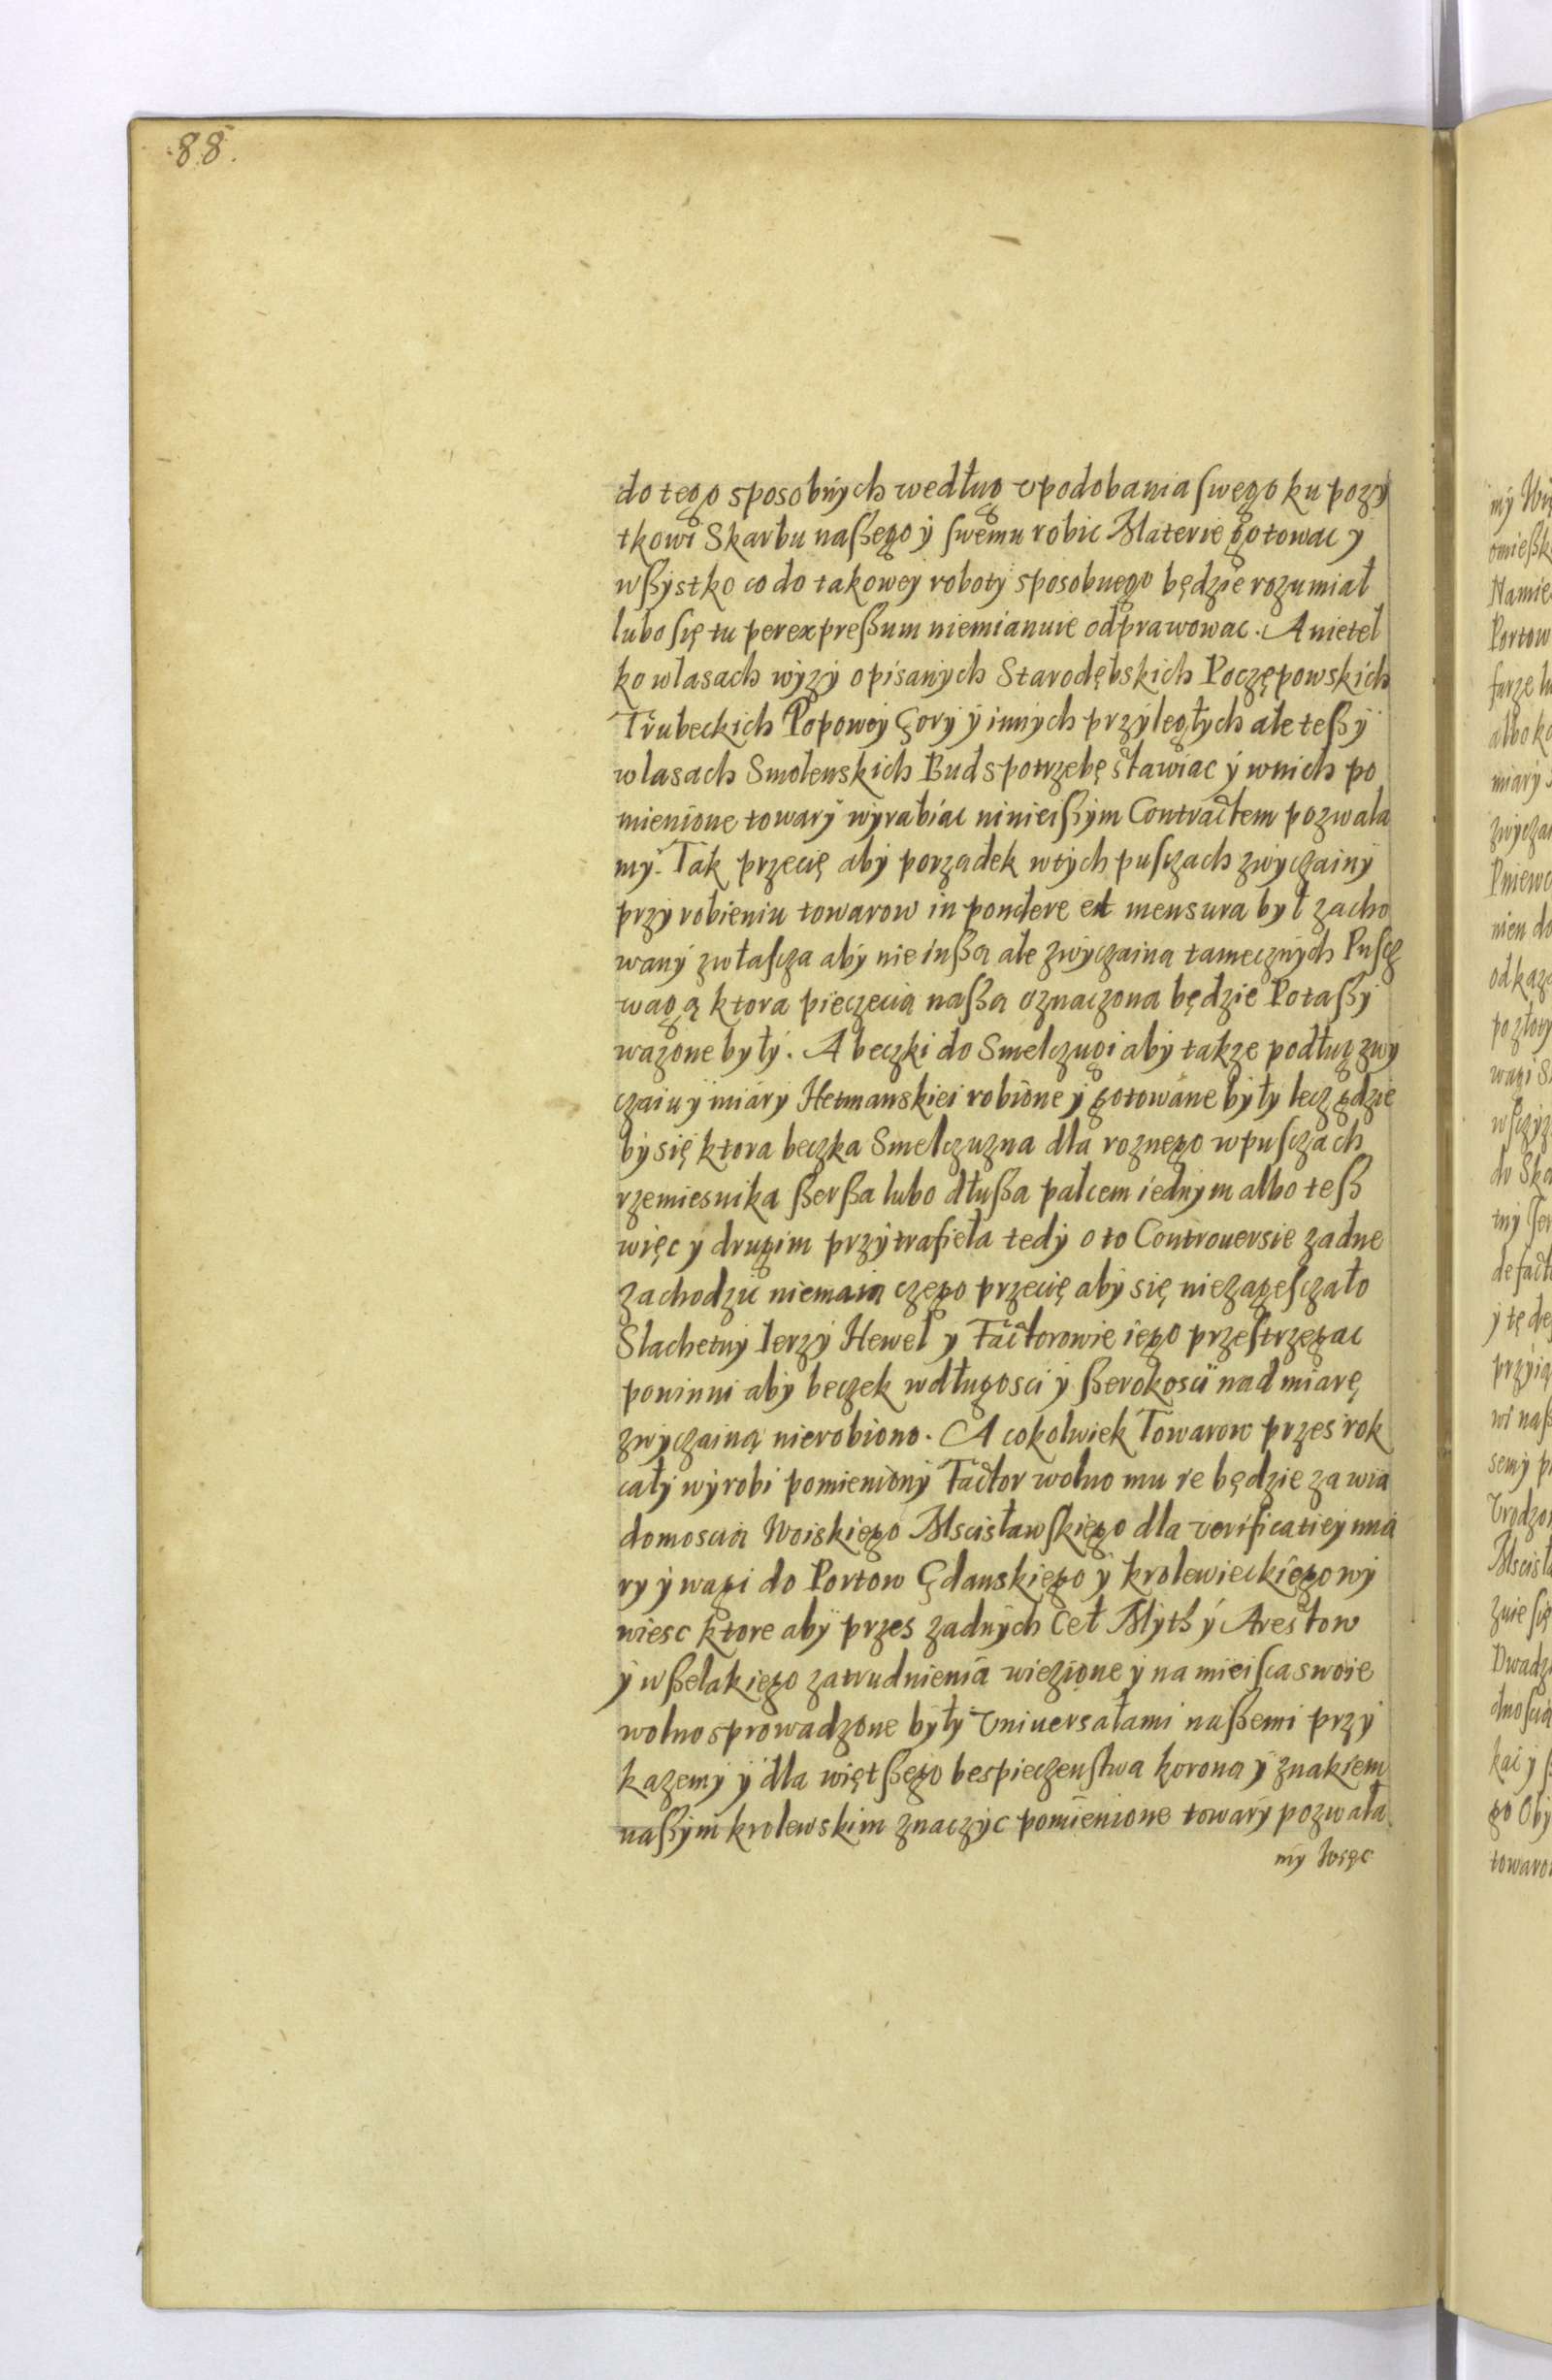 88.
do tego sposobnÿch według vpodobania ſwego ku pozÿ
tkowi Skarbu naßego ÿ ſwemu robic Materie gotowac ÿ
wßÿstko co do takoweÿ robotÿ sposobnego będzie rozumiał
lubo ſię tu per expreßum niemianuie odprawowac. A nietel
ko wlasach wÿzÿ opisanÿch Starodębskich Poczępowskich
Trubeckich Popoweÿ Gorÿ ÿ innÿch przÿległÿch ale teß ÿ
wlasach Smolenskich Bud spotrzebę stawiac ÿ wnich po
mienione towarÿ wÿrabiac ninieißÿm Contractem pozwala
mÿ. Tak przecię abÿ porządek wtÿch puſczach zwÿczainÿ
przÿ robieniu towarow in pondere et mensura bÿł zacho
wanÿ zwłaſcza abÿ nie inßą ale zwÿczainą tamecznÿch Puſcz
wagą ktora pieczecią naßą oznaczona będzie Potaßÿ
wazone bÿłÿ. A beczki do Smelczugi abÿ takze podług zwÿ
czaiu ÿ miarÿ Hetmanskiei robione ÿ gotowane bÿłÿ lecz gdzie
bÿ się ktora beczka Smelczuzna dla roznego wpuſczach
rzemiesnika ßerßa lubo dłußa palcem iednÿm albo teß
więc ÿ drugim przÿtrafieła tedÿ o to Controuersie zadne
zachodzic niemaią czego przecię abÿ się niezageſczało
Slachetnÿ Ierzÿ Hewel ÿ Factorowie iego przeſtrzegac
powinni abÿ beczek wdługosci ÿ ßerokosci nad miarę
zwÿczainą nierobiono. A cokolwiek Towarow przes rok
całÿ wÿrobi pomienionÿ Factor wolno mu ie będzie za wia
domoscią Woiskiego Mscisławſkiego dla verificatieÿ mia
rÿ ÿ wagi do Portow Gdanskiego ÿ krolewieckiego wÿ
wiesc ktore abÿ przes zadnÿch Ceł Mÿth ÿ Arestow
ÿ wßelakiego zatrudnienia wiezione ÿ na mieiſca swoie
wolno sprowadzone bÿłÿ Vniuersałami naßemi przÿ
kazemÿ ÿ dla więtßego bespieczenſtwa koroną ÿ znakiem
naßÿm krolewskim znaczÿc pomienione towarÿ pozwala
mÿ Więc